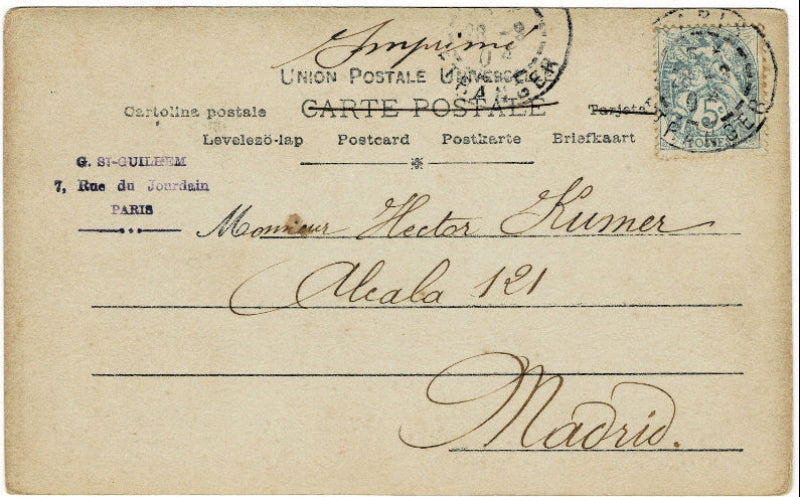 Imprimé
UNION POSTALE UNIVERSELLE
Cartolina postale CARTE POSTALE Tarjeta
Levelezö-lap Postcard Postkarte Briefkaart
G. ST-GUILHEM
7, Rue du Jourdain
PARIS
Monsieur Hector Kumer
Alcala 121
Madrid.
5
ETRANGER
ETRANGER